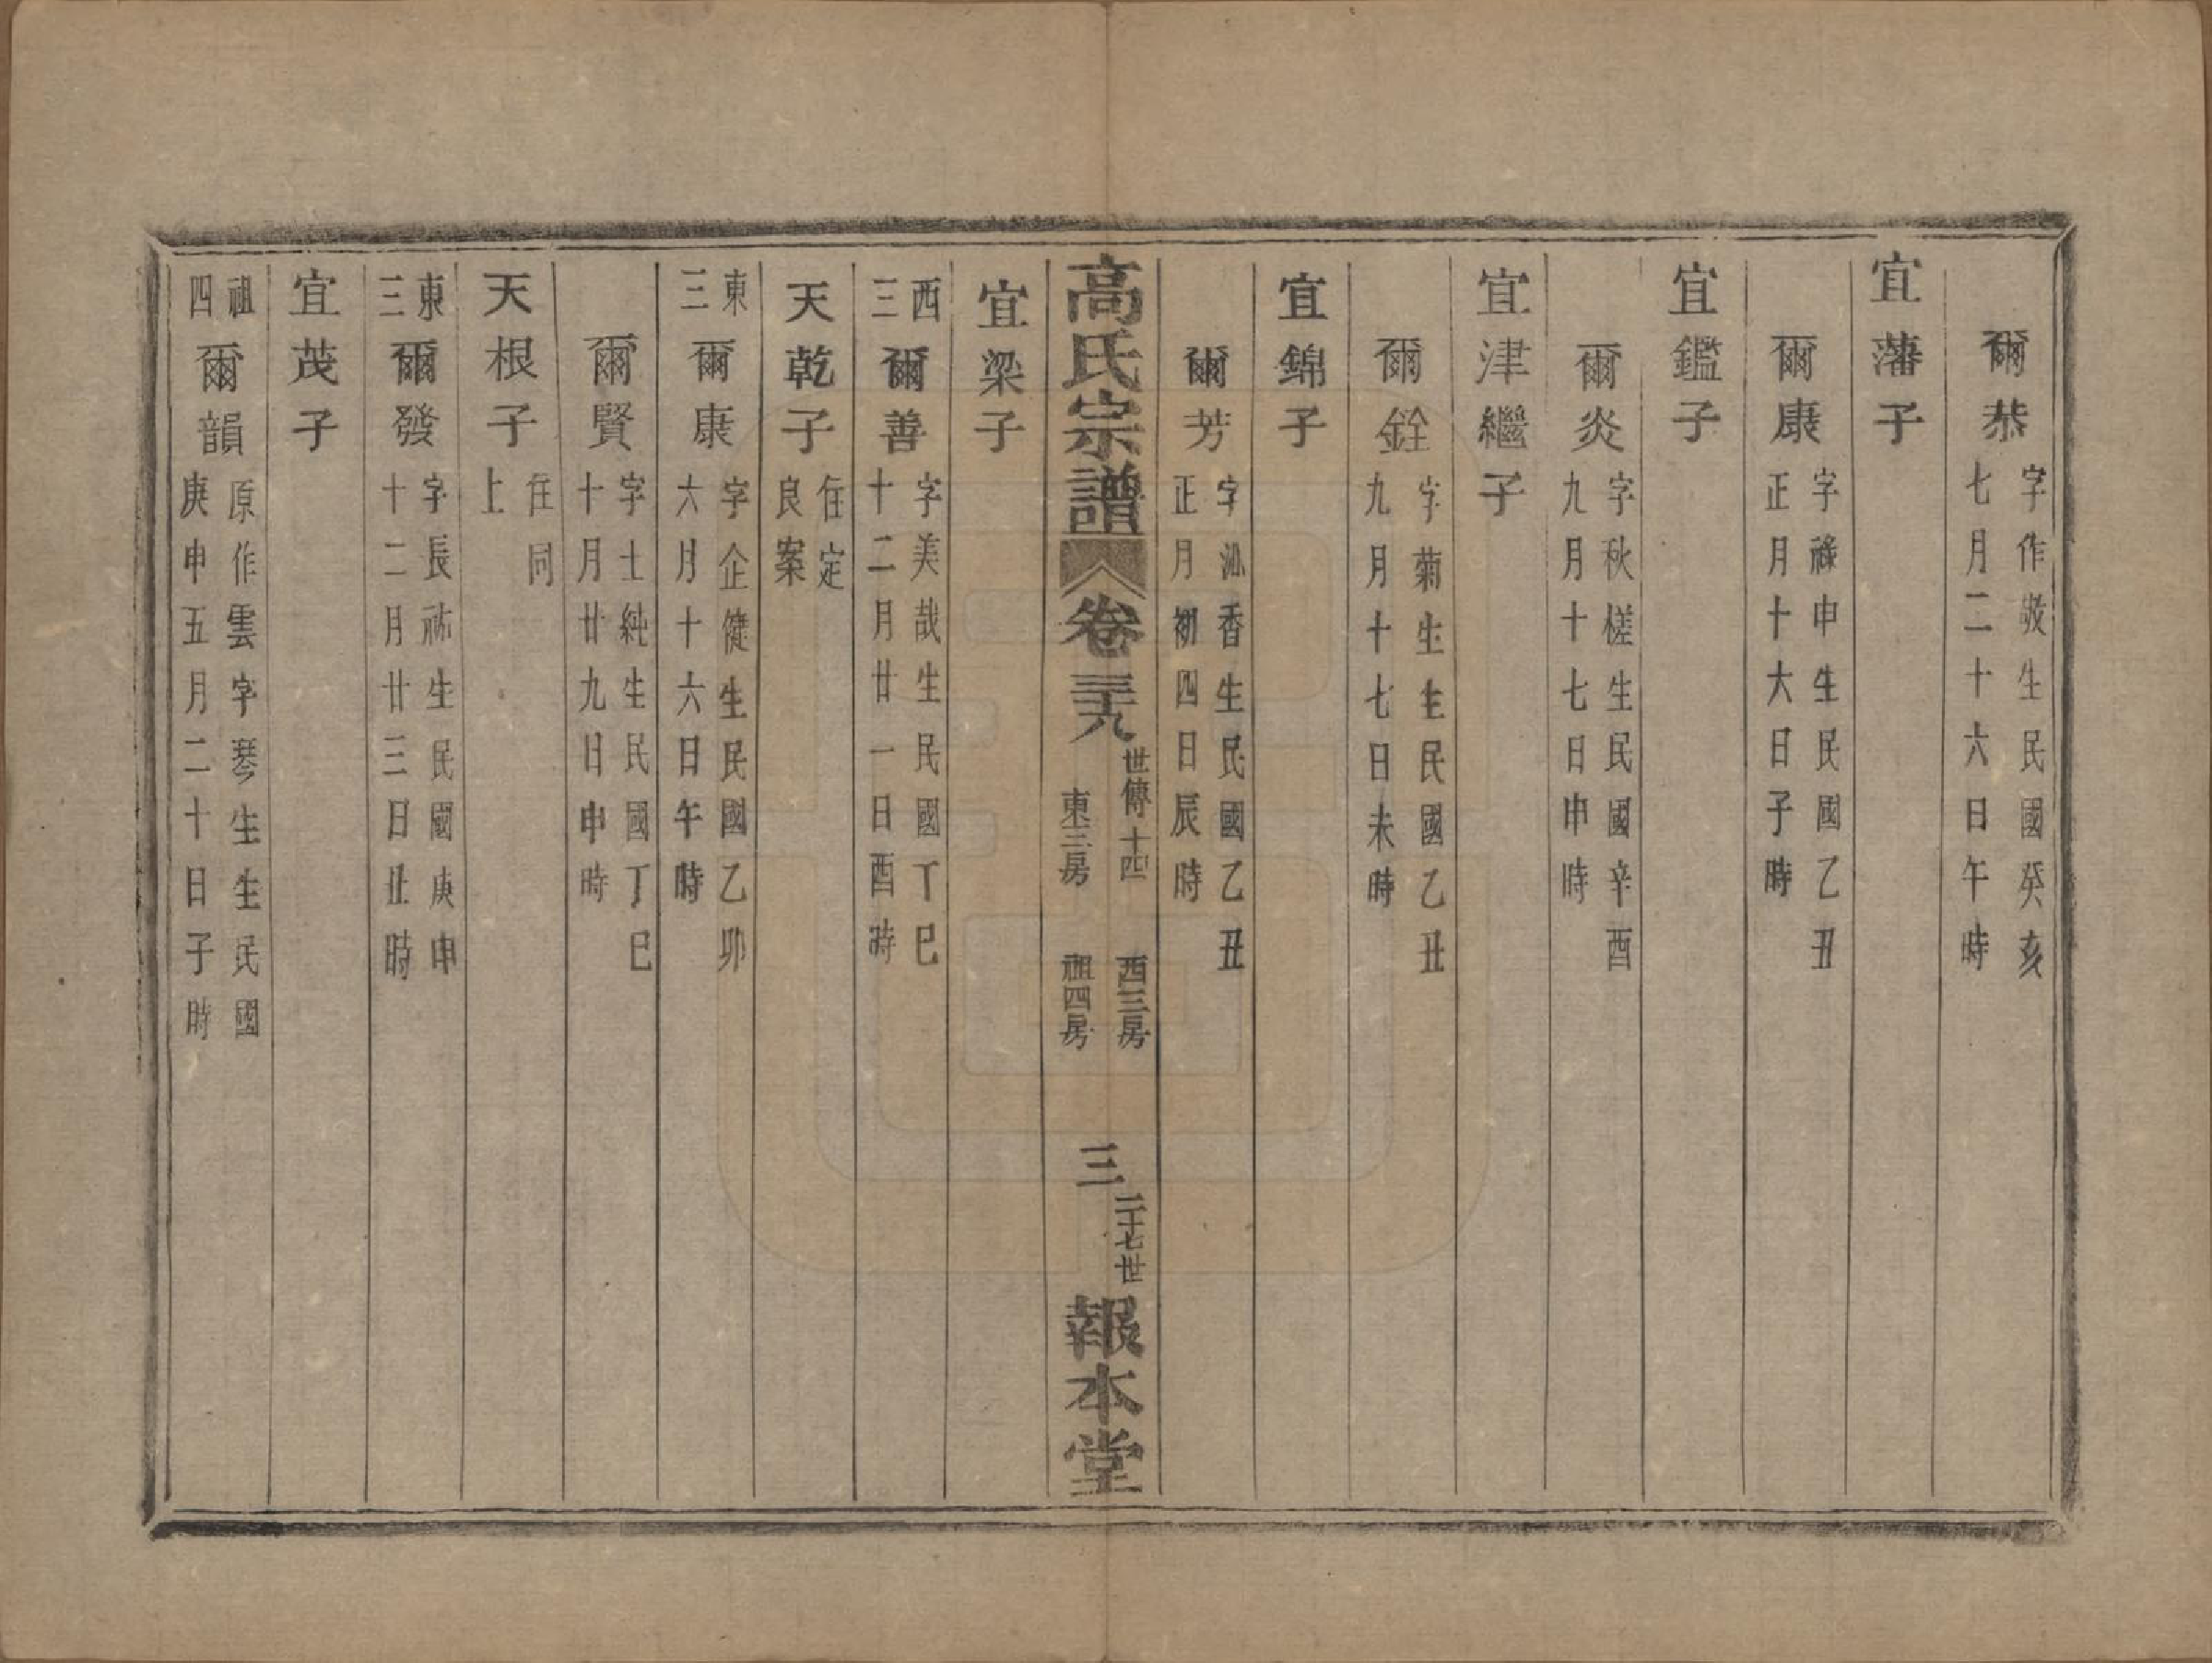 爾恭 字作敬生民國癸亥
七月二十六日午時
宜藩子
爾康 字祿申生民國乙丑
正月十六日子時
宜鑑子
爾炎 字秋槎生民國辛酉
九月十七日申時
宜津繼子
爾銓 字菊生生民國乙丑
九月十七日未時
宜錦子
爾芳 字沁香生民國乙丑
正月初四日辰時
高氏宗譜 卷三十九 世傳十四 東三房 西三房 祖四房 三 二十七世 報本堂
宜梁子
西三 爾善 字美哉生民國丁巳
十二月廿一日酉時
天乾子 住定
良案
東三 爾康 字企健生民國乙卯
六月十六日午時
爾賢 字士純生民國丁巳
十月廿九日申時
天根子 住同
上
東三 爾發 字長祢生民國庚申
十二月廿三日丑時
宜茂子
祖四 爾韻 原作雲字琴生生民國
庚申五月二十日子時